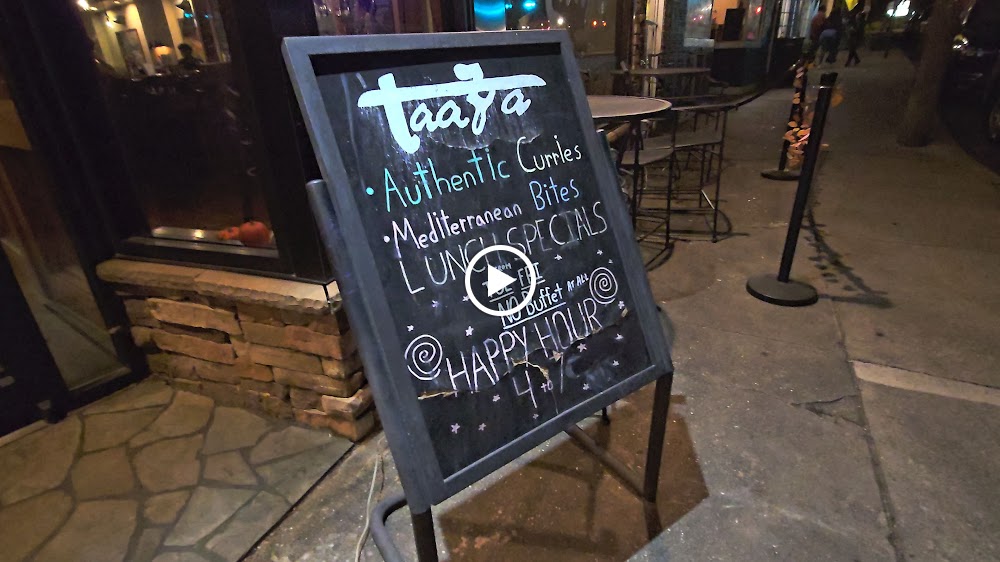 taaza
• Authentic Curries
• Mediterranean Bites
LUNCH SPECIALS
FRI
NO Buffet AT ALL
HAPPY HOUR
4 to